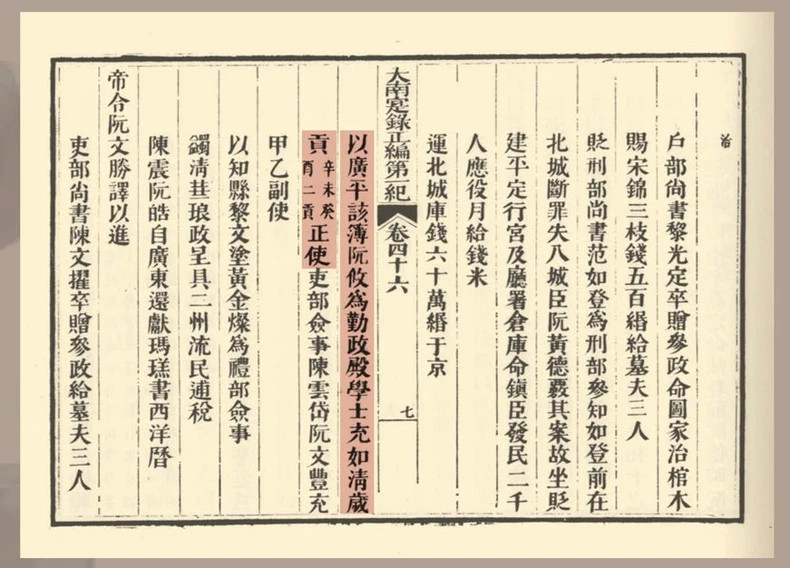 戶部尚書黎光定卒贈參政命圖家治棺木
賜宋錦三枝錢五百緡給墓夫三人
貶刑部尚書范如登爲刑部參知如登前在
北城斷罪失入城臣阮黃德覈其案故坐貶
建平定行宮及廳署倉庫命鎮臣發民二千
人應役月給錢米
運北城庫錢六十萬緡于京
大南寔錄正編第一紀 卷四十六 七
以廣平該簿阮攸爲勤政殿學士充如清歲
貢辛未癸酉二貢正使吏部僉事陳雲岱阮文豐充
甲乙副使
以知縣黎文塗黃金燦爲禮部僉事
蠲清葩琅政呈具二州流民逋稅
陳震阮皓自廣東還獻瑪𤧚書西洋曆
帝令阮文勝譯以進
吏部尚書陳文擢卒贈參政給墓夫三人